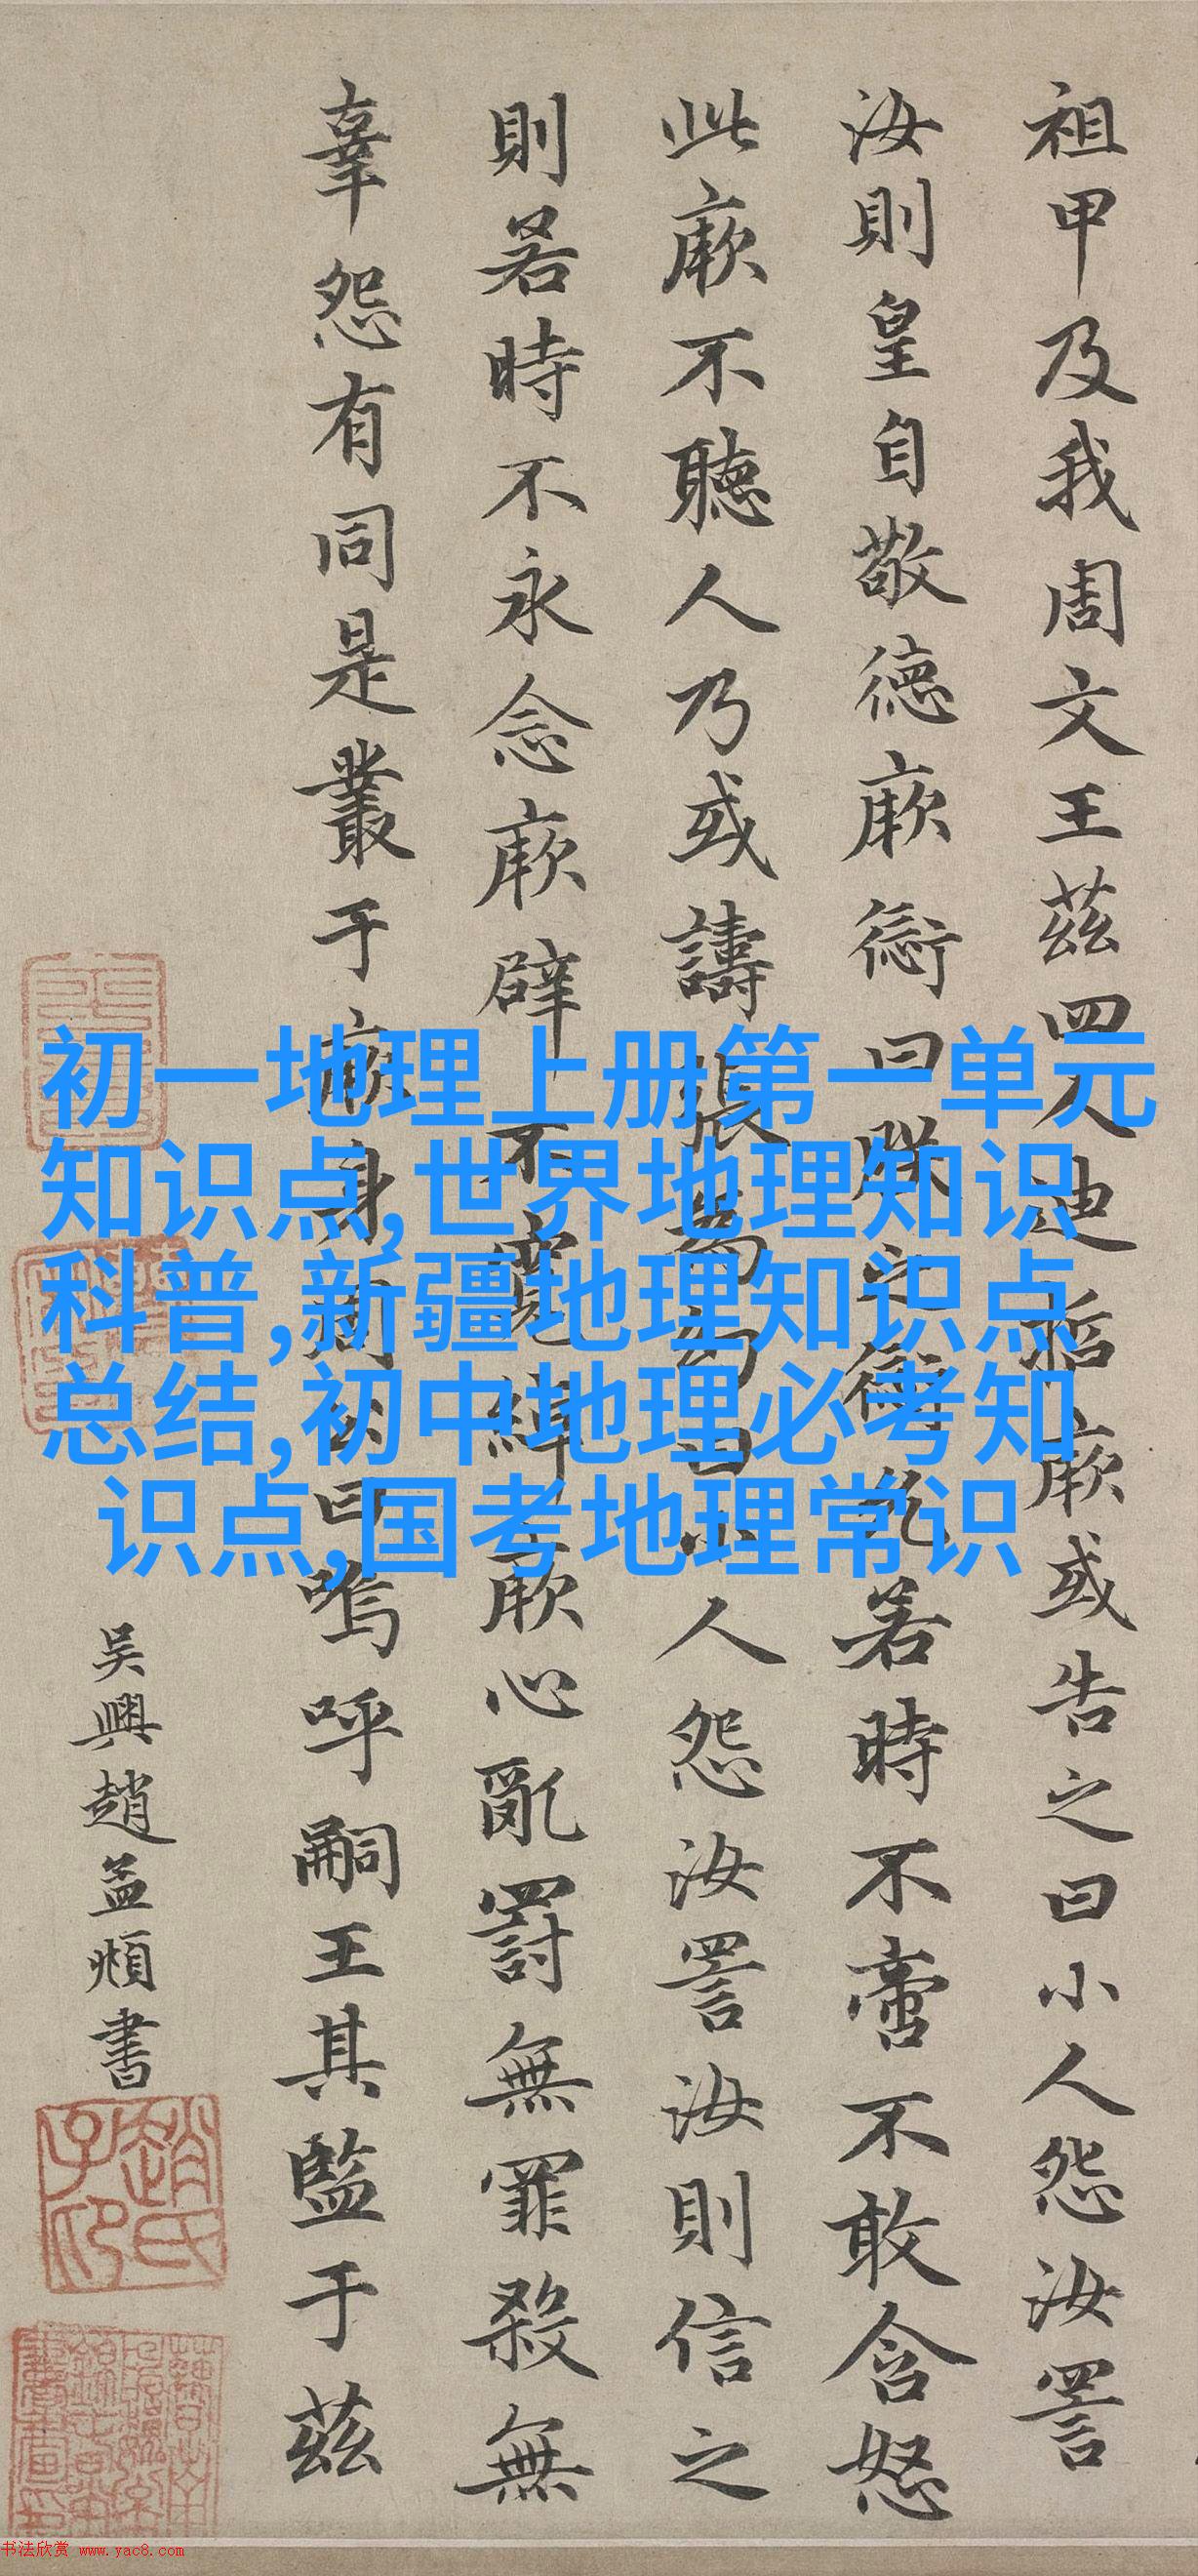 祖甲及我周文王茲四人迪哲厥或告之曰小人怨汝詈
汝則皇自敬德厥愆曰朕之愆允若時不啻不敢含怒
此厥不聽人乃或譸張為幻曰小人怨汝詈汝則信之
則若時不永念厥辟不寬綽厥心亂罰無罪殺無
辜怨有同是叢于厥身周公曰嗚呼嗣王其監于茲
吴興趙孟頫書
初一地理上册第一单元
知识点,世界地理知识
科普,新疆地理知识点
总结,初中地理必考知
识点,国考地理常识
趙氏子印
书法欣赏 www.yac8.com